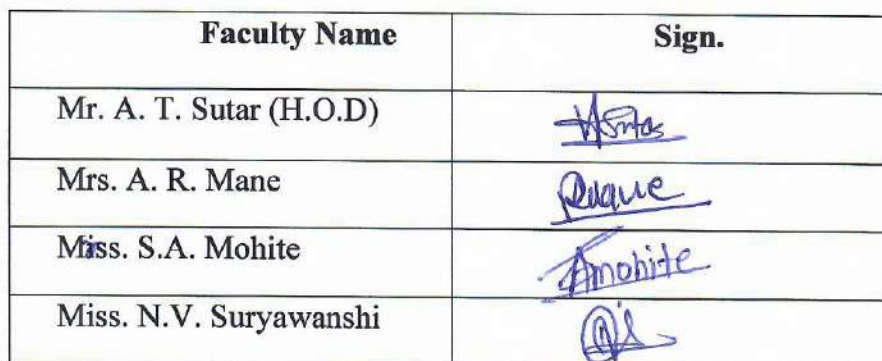 Faculty Name Sign.
Mr. A. T. Sutar (H.O.D)
Mrs. A. R. Mane
Miss. S.A. Mohite Amohite
Miss. N.V. Suryawanshi